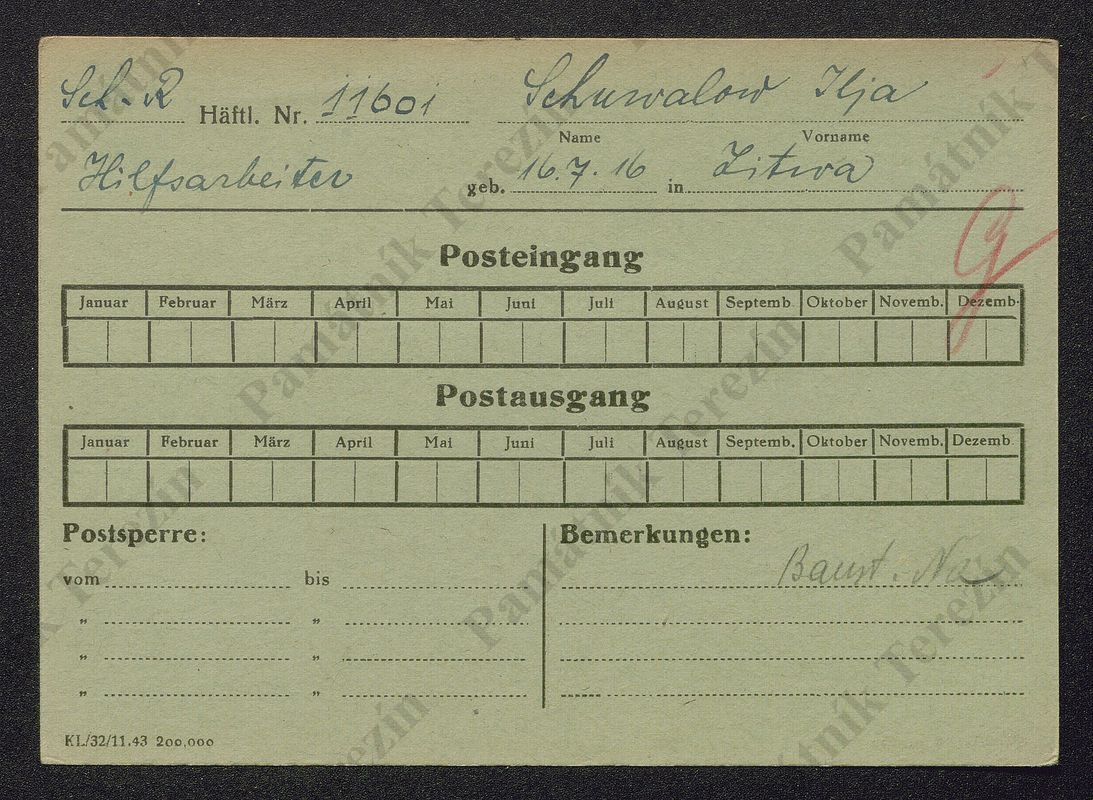 Sch.-R Häftl. Nr. 11601 Schuwalow Ilja
Name Vorname
Hilfsarbeiter geb. 16.7.16 in Litwa
g
Posteingang
Januar Februar März April Mai Juni Juli August Septemb. Oktober Novemb. Dezemb.
Postausgang
Januar Februar März April Mai Juni Juli August Septemb. Oktober Novemb. Dezemb.
Postsperre: Bemerkungen:
vom bis Baust.
„ „
„ „
„ „
KL/32/11.43 200,000
Památník Terezín